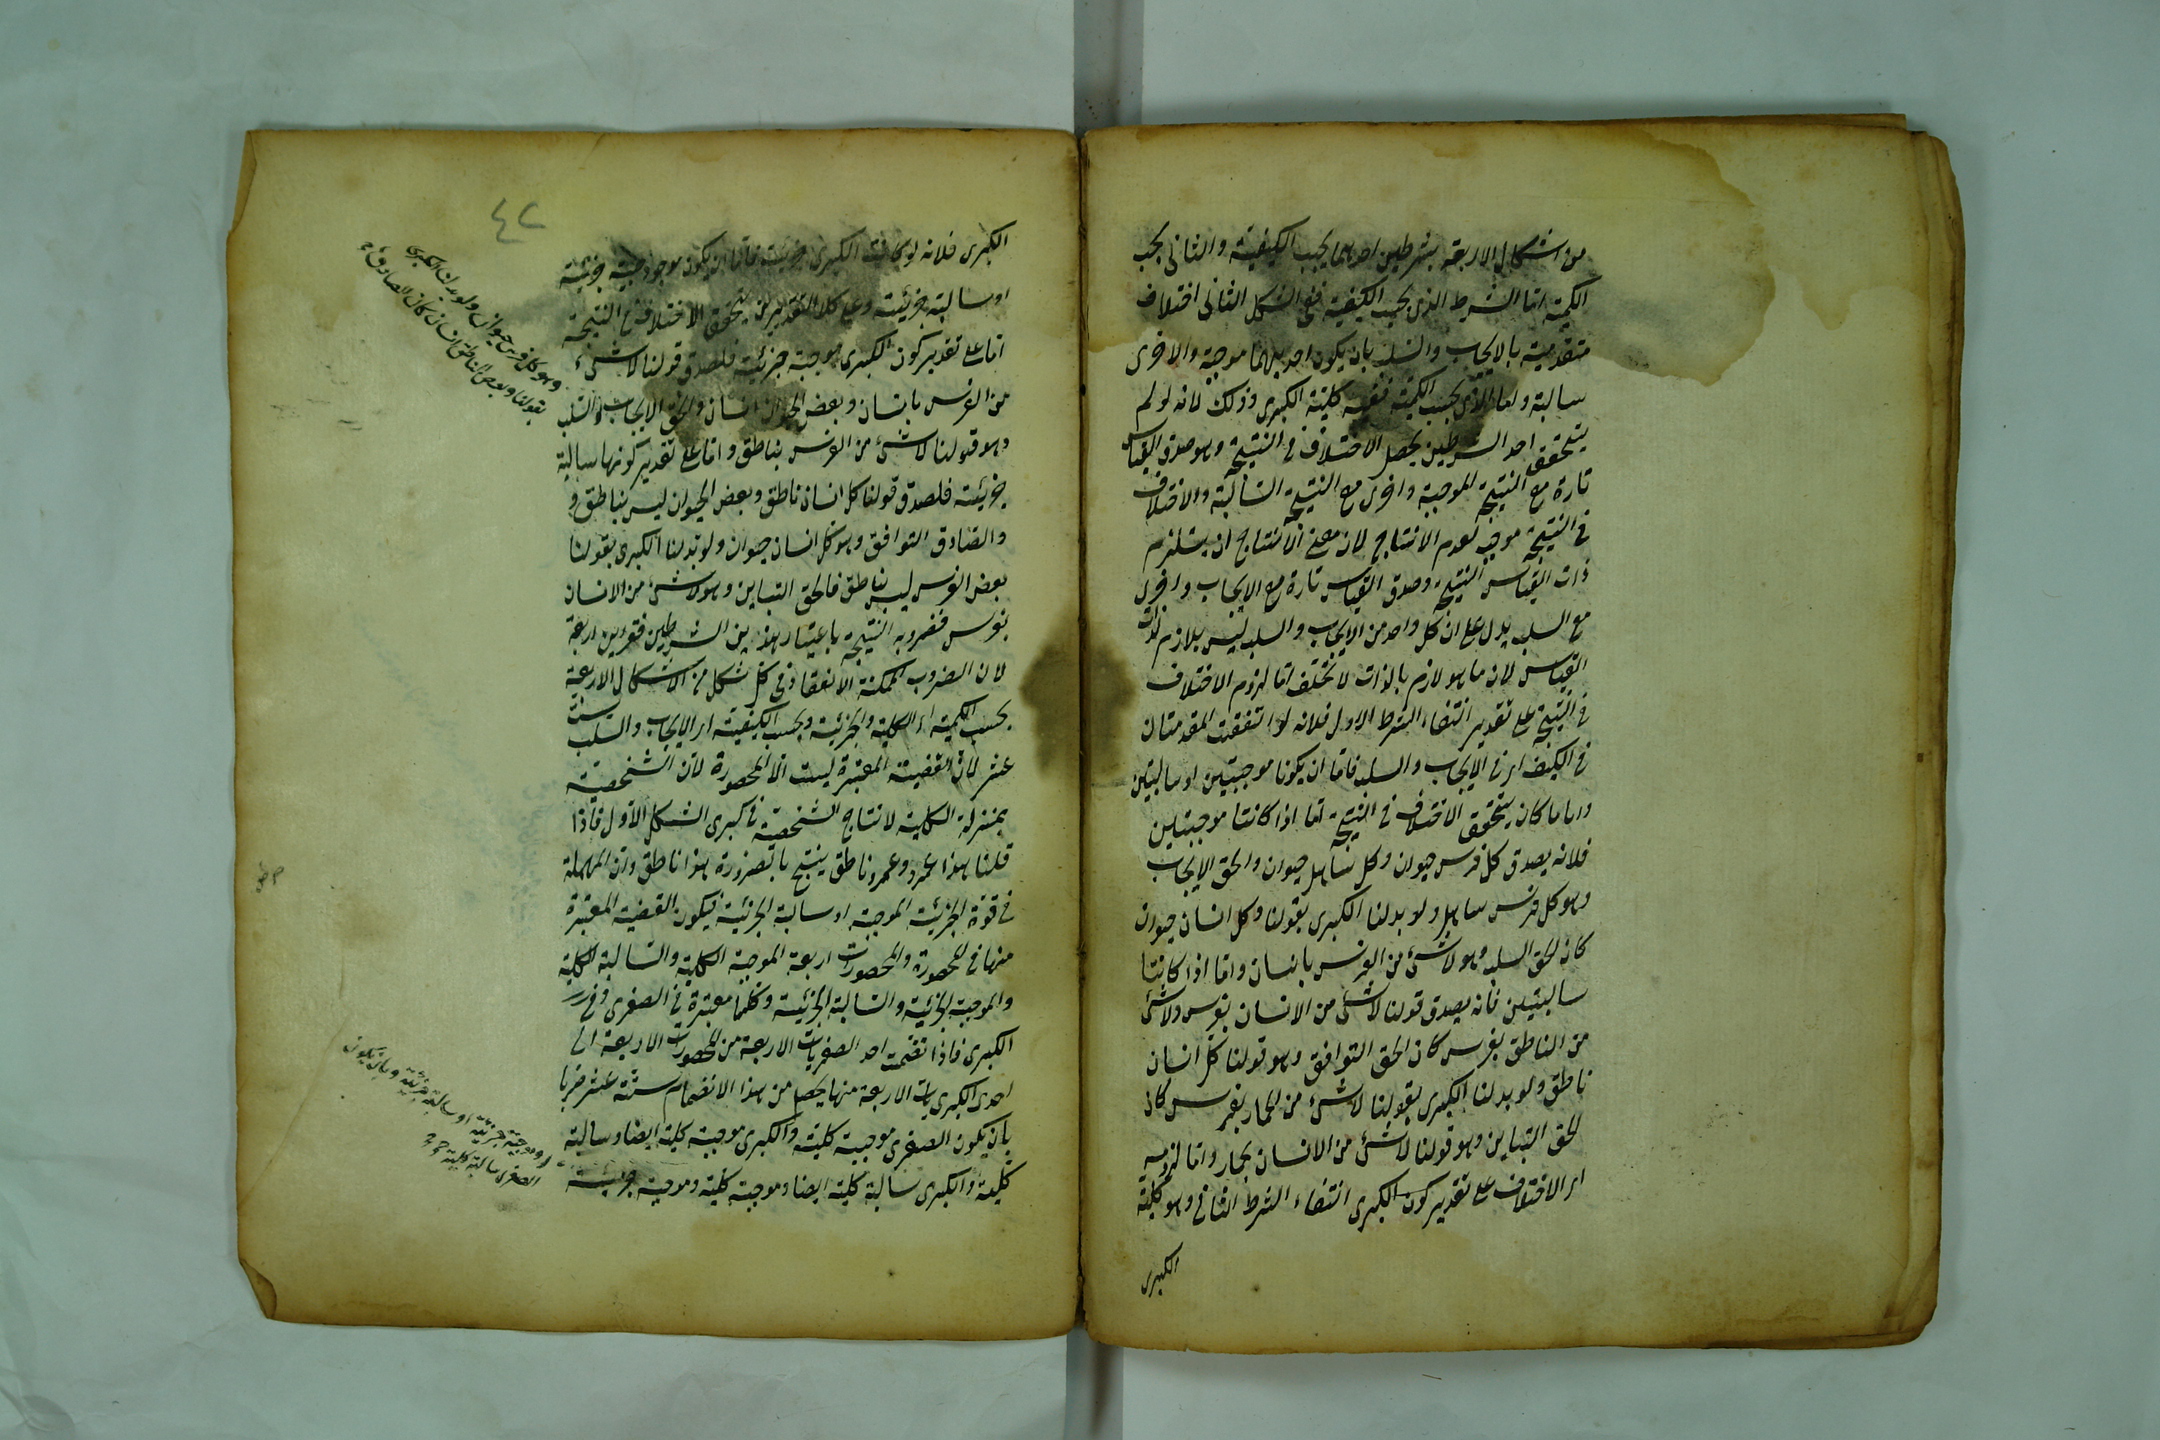 من اشكال الاربعة بشرطين احدهما بحسب الكيفية والثانى بحسب
الكمية اما الشرط الذى بحسب الكيفية ففى الشكل الثانى اختلاف
مقدمتيه بالايجاب والسلب بان يكون احديهما موجبة والاخرى
سالبة واما الذى بحسب الكمية فهى كلية الكبرى وذلك لانه لو لم
يتحقق احد الشرطين يحصل الاختلاف فى النتيجة وهو صدق القياس
تارة مع النتيجة الموجبة واخرى مع النتيجة السالبة والاختلاف
فى النتيجة موجب لعدم الانتاج لان معنى الانتاج ان يستلزم
ذات القياس النتيجة وصدق القياس تارة مع الايجاب واخرى
مع السلب يدل على ان كل واحد من الايجاب والسلب ليس بلازم لذات
القياس لان ما هو لازم بالذات لا تختلف اما لزوم الاختلاف
فى النتيجة على تقدير انتفاء الشرط الاول فلانه لو اتفقت المقدمتان
فى الكيف اى فى الايجاب والسلب فاما ان يكونا موجبتين او سالبتين
واما ما كان يتحقق الاختلاف فى النتيجة اما اذا كانتا موجبتين
فلانه يصدق كل فرس حيوان وكل ساهل حيوان والحق الايجاب
وهو كل فرس ساهل ولو بدلنا الكبرى بقولنا وكل انسان حيوان
كان الحق السلب وهو لا شئ من الفرس بانسان واما اذا كانتا
سالبتين فانه يصدق قولنا لا شئ من الانسان بفرس ولا شئ
من الناطق بفرس كان الحق التوافق وهو قولنا كل انسان
ناطق ولو بدلنا الكبرى بقولنا لا شئ من الحمار بفرس كان
الحق التباين وهو قولنا لا شئ من الانسان بحمار واما لزومه
اى الاختلاف على تقدير كون الكبرى انتفاء الشرط الثانى وهو كلية
الكبرى
٤٢
الكبرى فلانه لو كانت الكبرى جزئية فاما ان يكون موجبة جزئية
او سالبة جزئية وعلى كلا التقديرين يتحقق الاختلاف فى النتيجة
اما على تقدير كون الكبرى موجبة جزئية فلصدق قولنا لا شئ
من الفرس بانسان وبعض الحيوان انسان والحق الايجاب والسلب
وهو قولنا لا شئ من الفرس بناطق واما على تقدير كونها سالبة
جزئية فلصدق قولنا كل انسان ناطق وبعض الحيوان ليس بناطق و
والصادق التوافق وهو كل انسان حيوان ولو بدلنا الكبرى بقولنا
بعض الفرس ليس بناطق فالحق التباين وهو لا شئ من الانسان
بفرس فضروبه النتيجة باعتبار هذين الشرطين اربعة
لان الضروب الممكنة الانعقاد فى كل شكل من الاشكال الاربعة
بحسب الكمية اى الكلية والجزئية وبحسب الكيفية اى الايجاب والسلب ستة
عشر لان القضية المعتبرة ليست الا المحصورة لان الشخصية
بمنزلة الكلية لانتاج الشخصية فى كبرى الشكل الاول فاذا
قلنا هذا عمرو وعمرو ناطق ينتج بالضرورة هذا ناطق وان المهملة
فى قوة الجزئية الموجبة او سالبة الجزئية فيكون القضية المعتبرة
منها فى المحصورة والمحصورات اربعة الموجبة الكلية والسالبة الكلية
والموجبة الجزئية والسالبة الجزئية وكلها معتبرة فى الصغرى وفى
الكبرى فاذا نضمت احد الصغريات الاربعة من المحصورات الاربعة الى
احدى الكبريات الاربعة منها يحصل من هذا الانضمام ستة عشر ضربا
بان يكون الصغرى موجبة كلية والكبرى موجبة كلية ايضا وسالبة
كلية والكبرى سالبة كلية ايضا وموجبة كلية وموجبة جزئية
وهو كل فرس حيوان ولو بدلنا الكبرى
بقولنا وبعض الناطق انسان كان الصادق
او موجبة جزئية او سالبة جزئية وبان يكون
الصغرى سالبة كلية